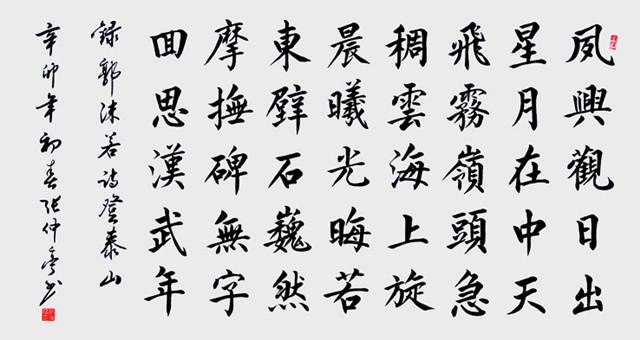 夙興觀日出
星月在中天
飛霧嶺頭急
稠雲海上旋
晨曦光晦若
東壁石巍然
摩撫碑無字
回思漢武年
錄郭沫若詩登泰山
辛卯年初春張仲亭書